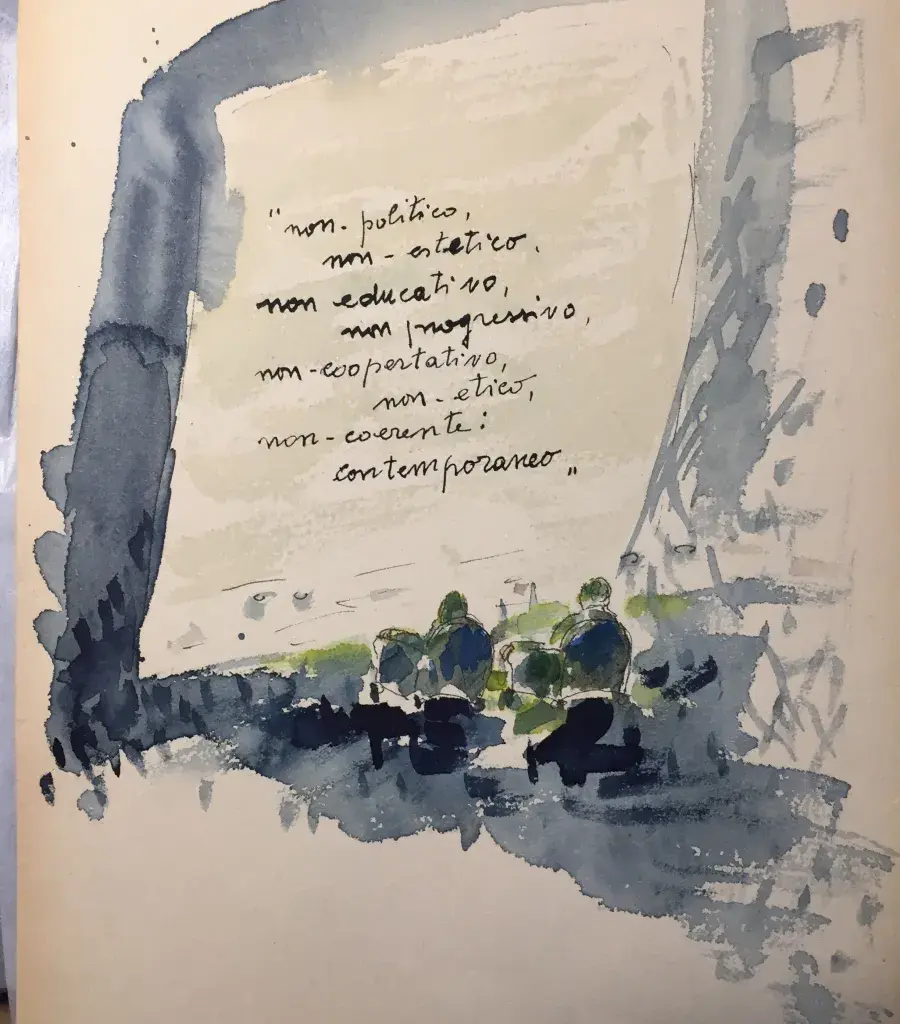 "non-politico,
non-estetico,
non educativo,
non progressivo,
non-coopertativo,
non-etico,
non-coerente:
contemporaneo"